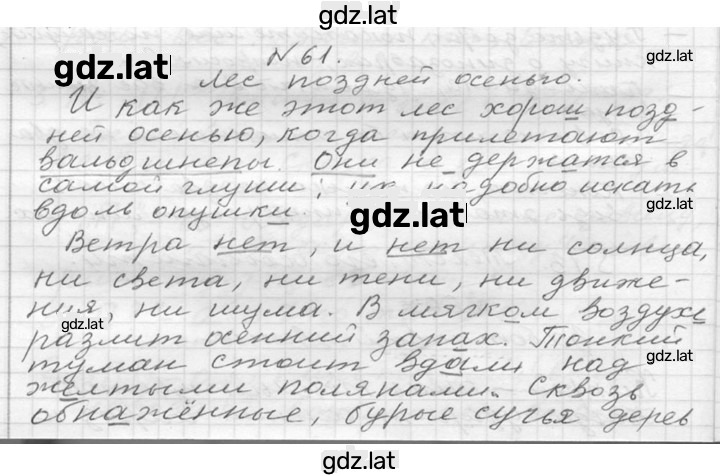 gdz.lat
№ 61.
gdz.lat
gdz.lat
Лес поздней осенью.
И как же этот лес хорош позд-
ней осенью, когда прилетают
вальдшнепы. Они не держатся в
самой глуши; их надобно искать
gdz.lat
вдоль опушки.
gdz.lat
Ветра нет, и нет ни солнца,
ни света, ни тени, ни движе-
ния, ни шума. В мягком воздухе
gdz.lat
разлит осенний запах. Тонкий
туман стоит вдали над
gdz.lat
желтыми полянами. Сквозь
обнажённые, бурые сучья дерев
gdz.lat
gdz.lat